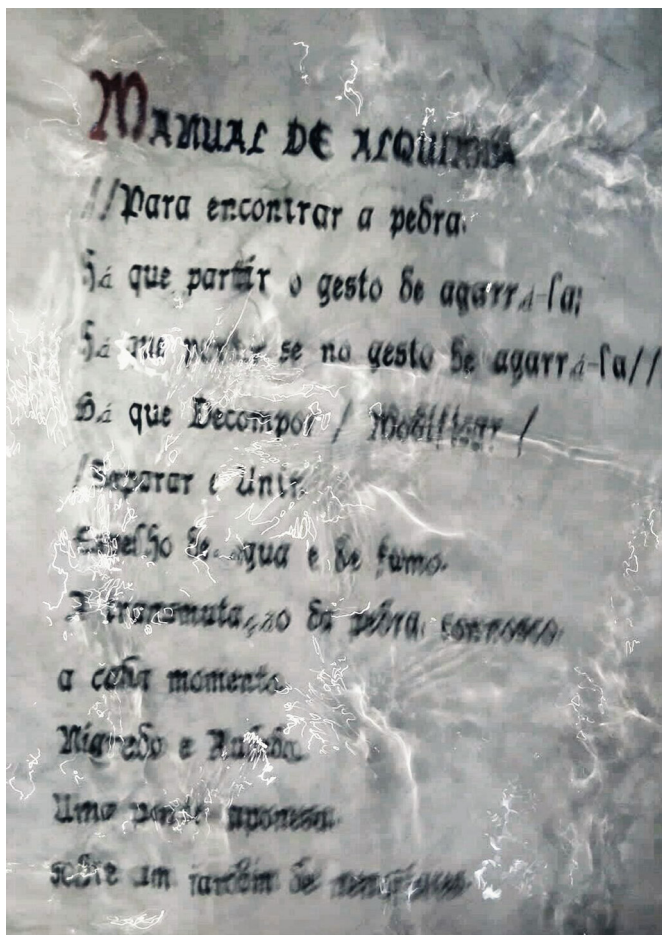 MANUAL DE ALQUIMIA
//Para encontrar a pedra.
Há que partir o gesto de agarrá-la;
Há que perder se no gesto de agarrá-la//
Há que Decompor / Modificar /
/Separar e Unir.
Espelho de água e de fumo.
A transmutação da pedra,
a cada momento.
Nigredo e Rubedo.
Uma ponte japonesa
sobre um jardim de